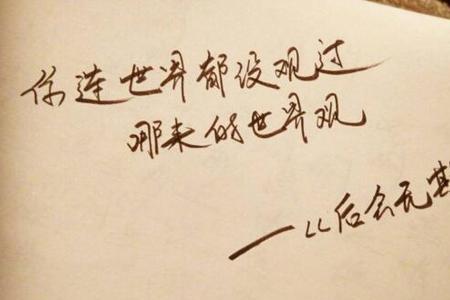 你连世界都没观过
哪来的世界观
——《后会无期